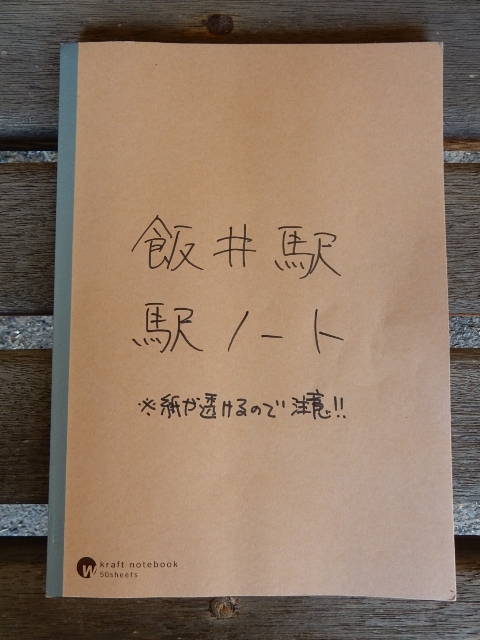 飯井駅
駅ノート
※紙が透けるので注意!!
W kraft notebook
50sheets